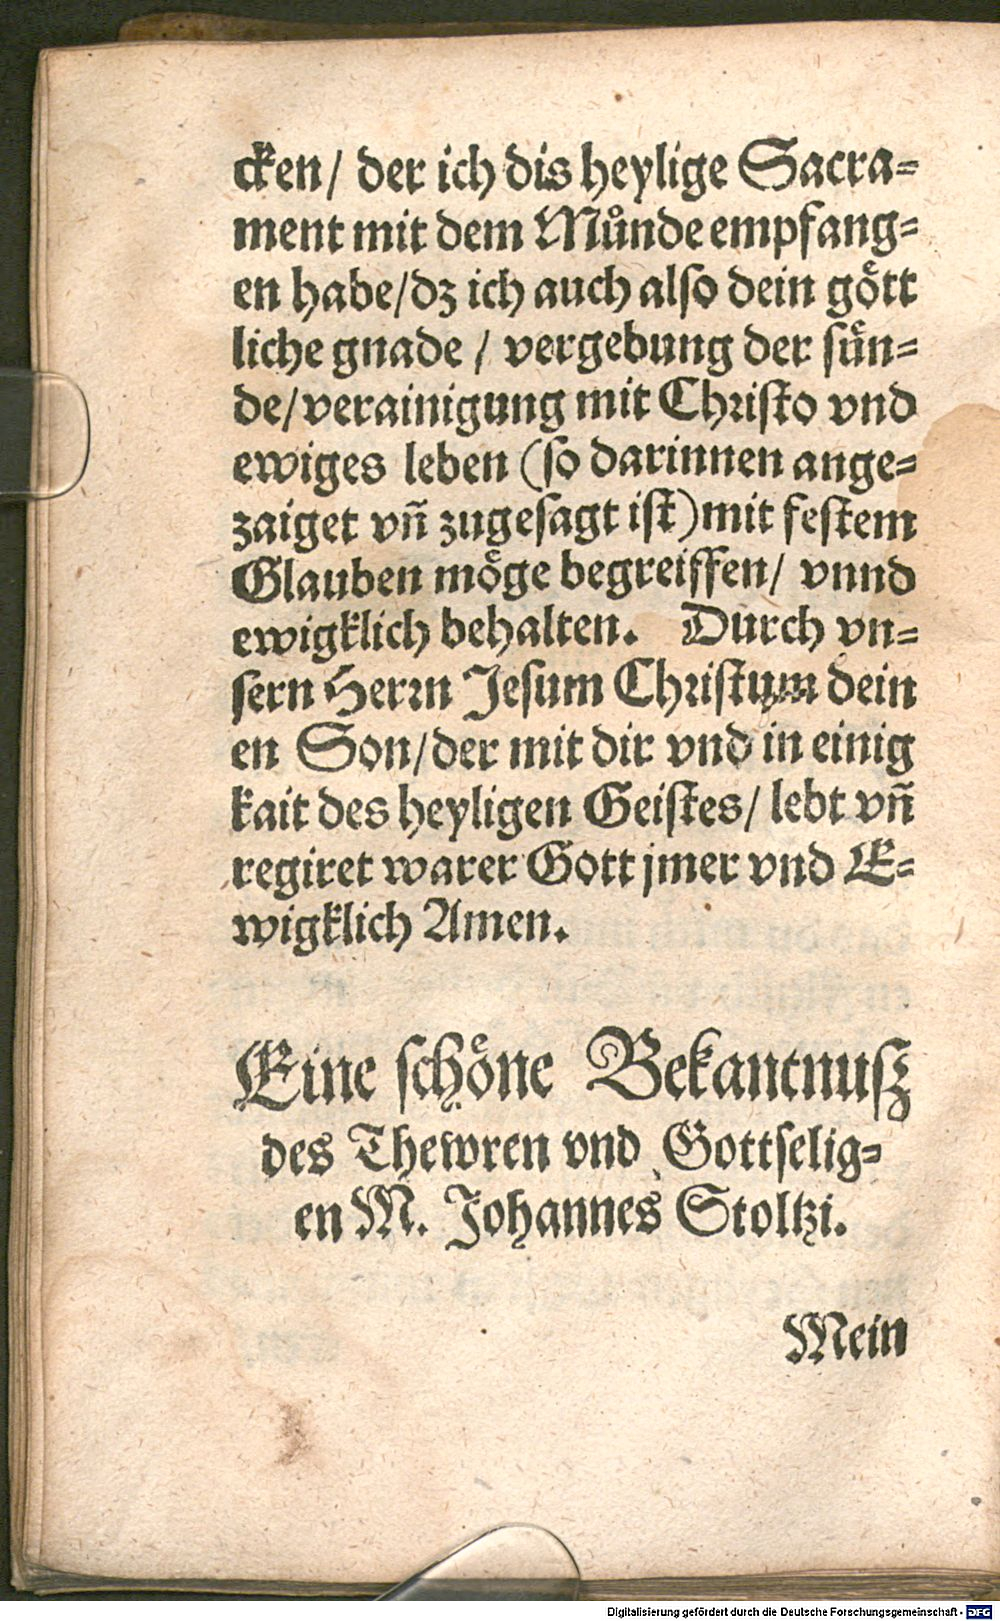 cken/ der ich dis heylige Sacra-
ment mit dem Můnde empfang-
en habe/dz ich auch also dein goͤtt
liche gnade / vergebung der suͤn-
de/verainigung mit Christo vnd
ewiges leben (so darinnen ange-
zaiget vñ zugesagt ist) mit festem
Glauben moͤge begreiffen/ vnnd
ewigklich behalten. Durch vn-
sern Herrn Jesum Christum dein
en Son/der mit dir vnd in einig
kait des heyligen Geistes/ lebt vñ
regiret warer Gott jmer vnd E-
wigklich Amen.
Eine schoͤne Bekantnusz
des Thewren vnd Gottselig-
en M. Johannes Stoltzi.
Mein
Digitalisierung gefördert durch die Deutsche Forschungsgemeinschaft - DFG